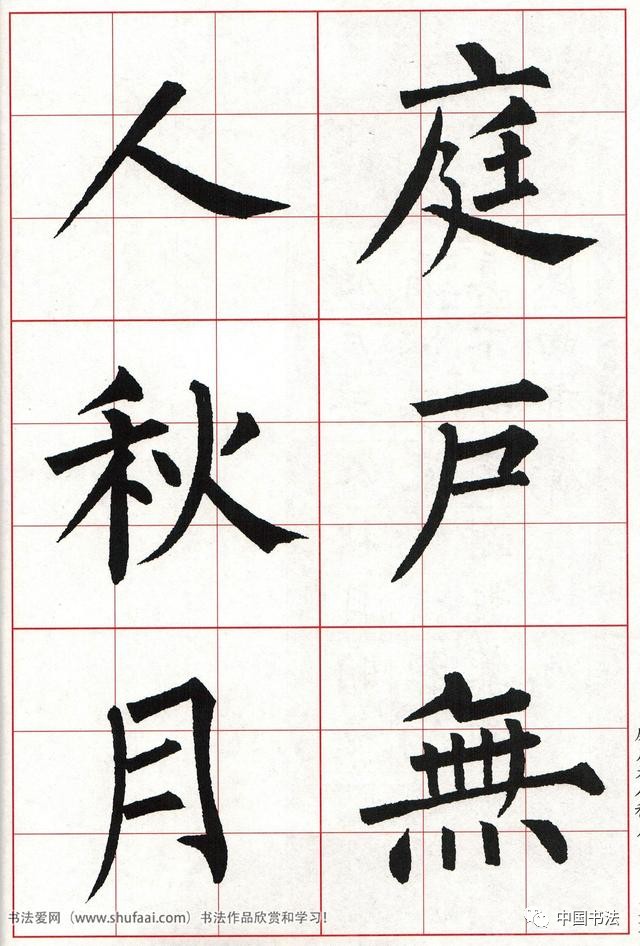 庭戶無
人秋月
书法爱网（www.shufaai.com）书法作品欣赏和学习！
中国书法